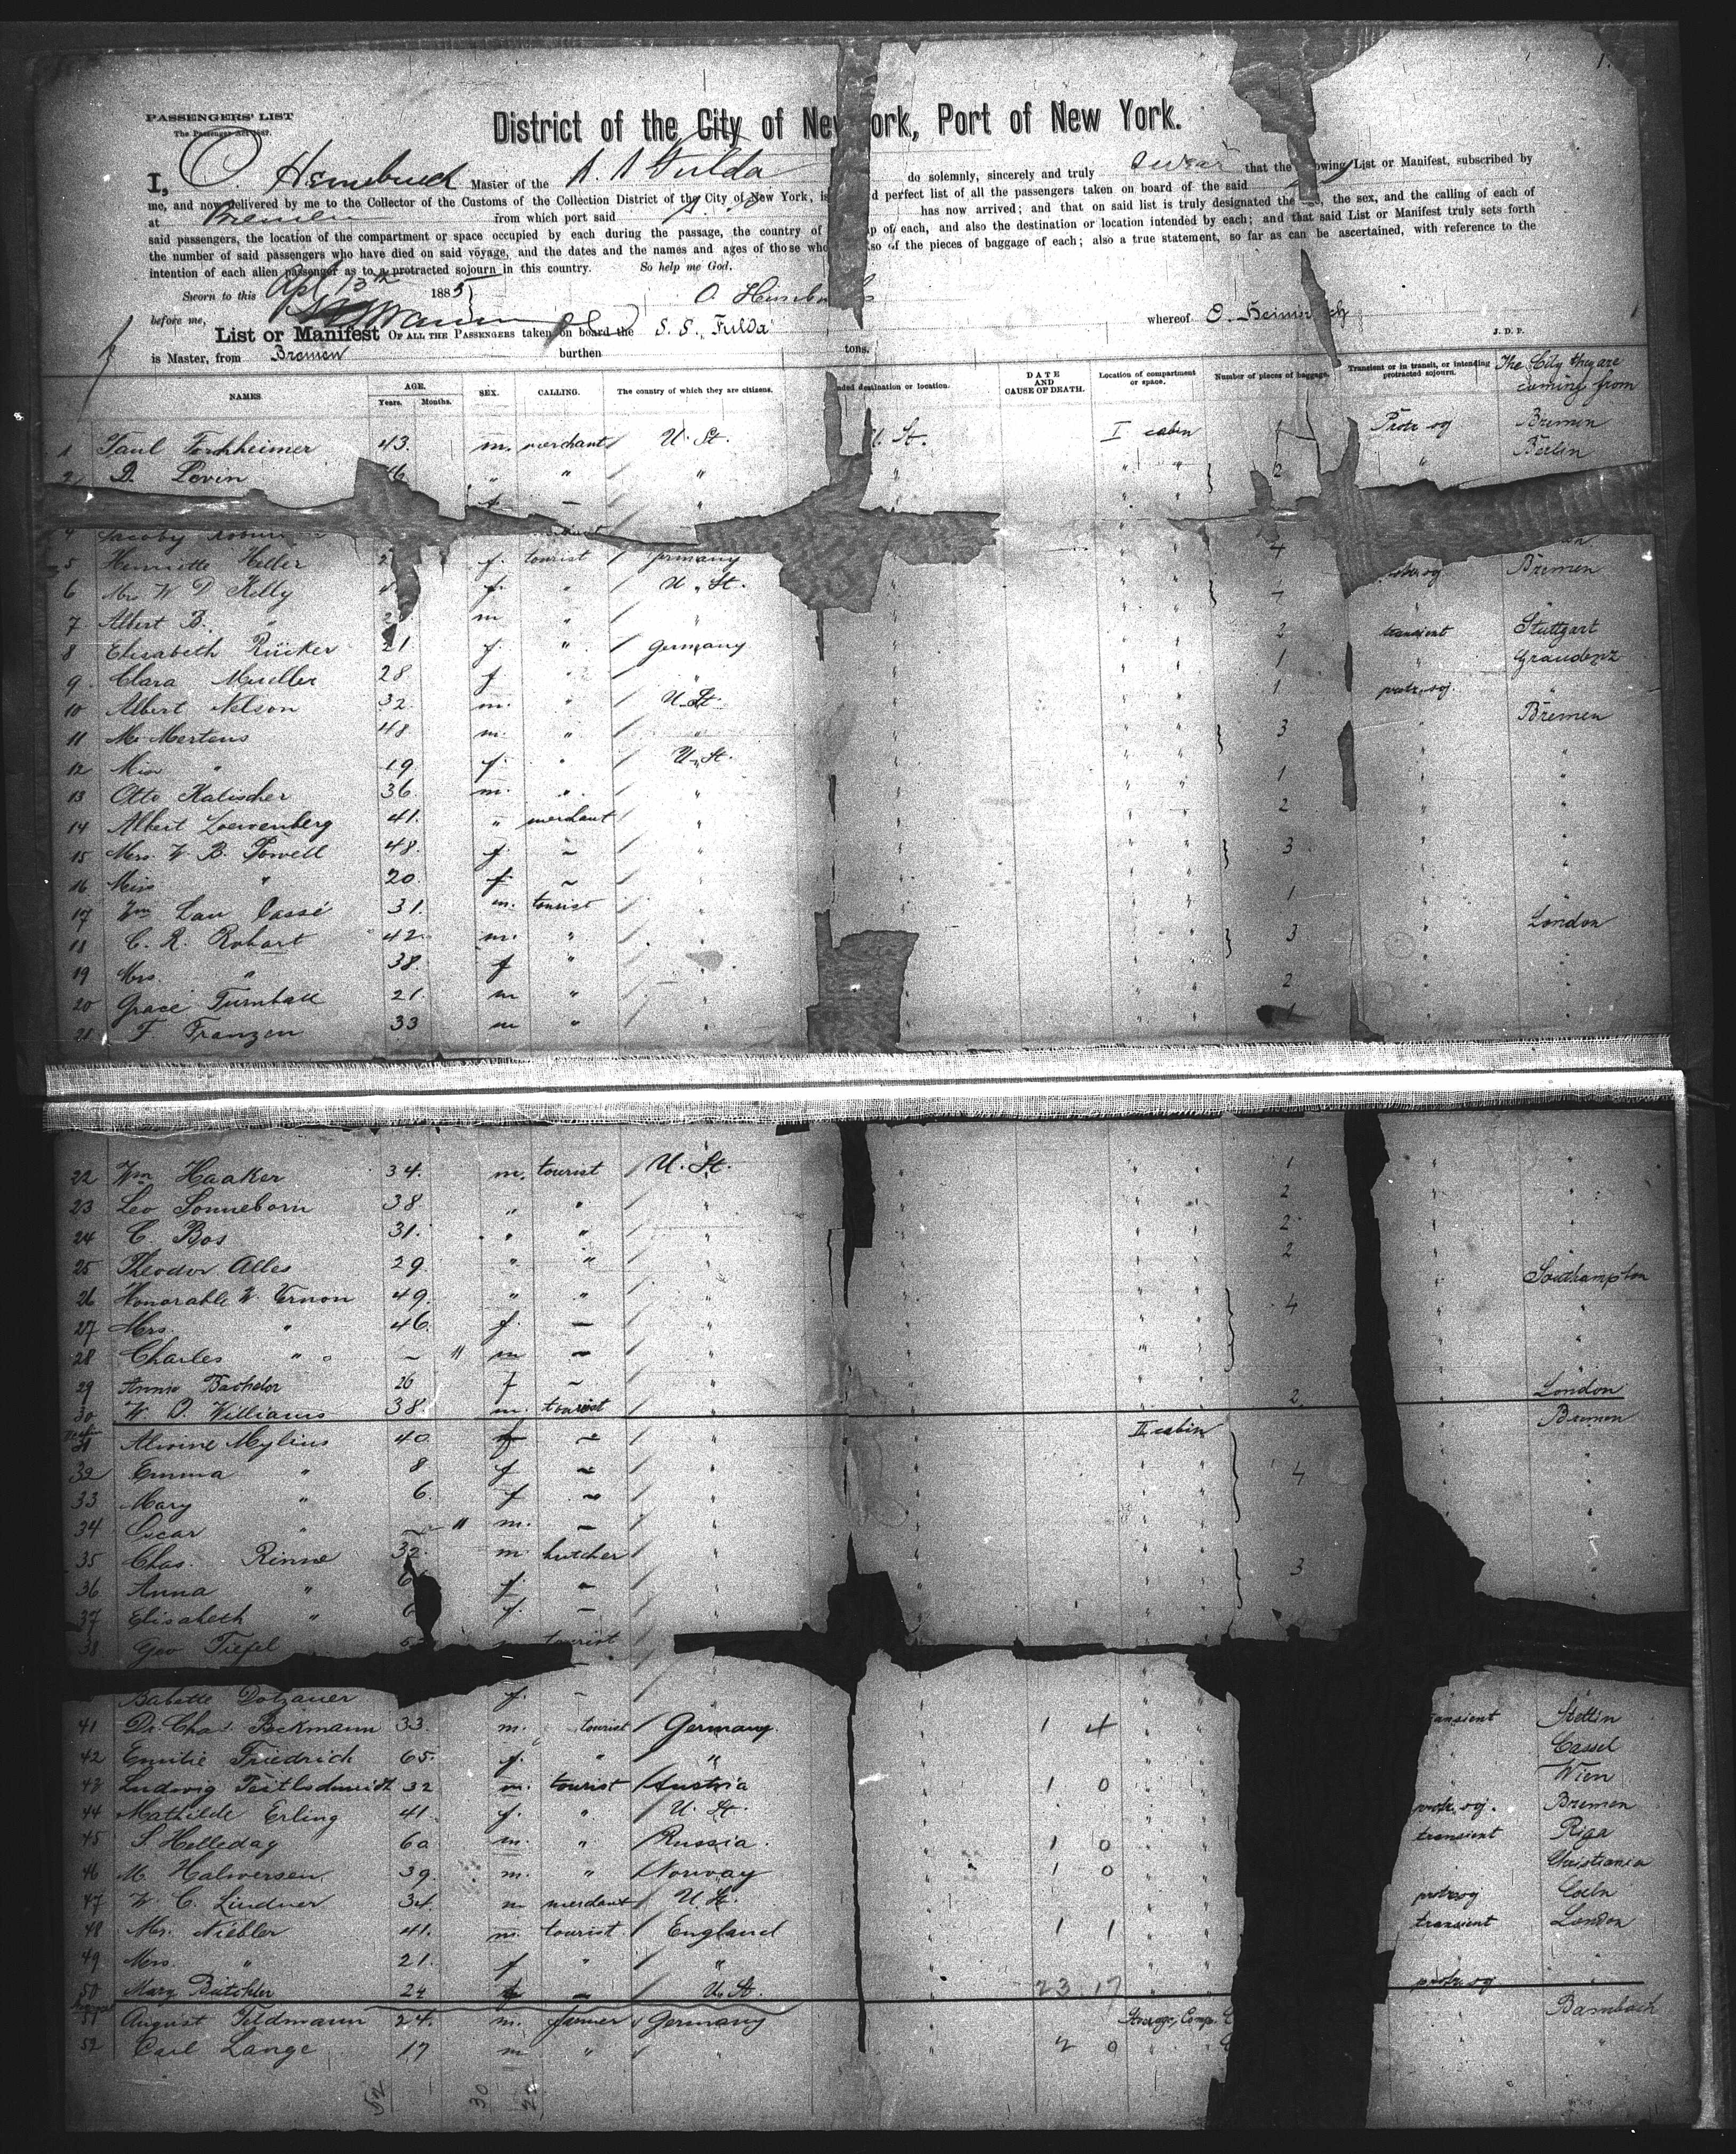 1.
PASSENGERS' LIST
The Passenger Act 1882.
District of the City of New York, Port of New York.
I, O. Heimbruch Master of the S. S. Fulda do solemnly, sincerely and truly swear that the following List or Manifest, subscribed by
me, and now delivered by me to the Collector of the Customs of the Collection District of the City of New York, is d perfect list of all the passengers taken on board of the said
at Bremen from which port said S. S. has now arrived; and that on said list is truly designated the the sex, and the calling of each of
said passengers, the location of the compartment or space occupied by each during the passage, the country of p of each, and also the destination or location intended by each; and that said List or Manifest truly sets forth
the number of said passengers who have died on said voyage, and the dates and the names and ages of those who so of the pieces of baggage of each; also a true statement, so far as can be ascertained, with reference to the
intention of each alien passenger as to a protracted sojourn in this country. So help me God.
Sworn to this Apl 13th 1885
before me,
List or Manifest OF ALL THE PASSENGERS taken on board the S. S. Fulda whereof O. Heimbruch
is Master, from Bremen burthen tons. J. D. P.
NAMES AGE. Years. Months. SEX. CALLING. The country of which they are citizens. nded destination or location. DATE AND CAUSE OF DEATH. Location of compartment or space. Number of pieces of baggage. Transient or in transit, or intending protracted sojourn. The City they are coming from
1 Paul Forchheimer 43. m. merchant U. St. U. St. I cabin 1 Protr. sog Bremen
2 D. Levin 46 " " " " " " 2 " Berlin
f - " " "
4 Jacoby
5 Henriette Heller f. tourist Germany " " 4
6 Mrs W D Kelly f. " U. St. " " " Bremen
7 Albert B. " m " " " " "
8 Elisabeth Rücker 21 f. " Germany " " " 2 transient Stuttgart
9 Clara Mueller 28 f " " " " " 1 " Graudenz
10 Albert Nelson 32 m. " U. St. " " " 1 protr. sog. "
11 Mr Mertens 48 m. " " " " " 3 " Bremen
12 Miss " 19 f. " U. St. " " " " "
13 Otto Kalischer 36 m. " " " " " 1 " "
14 Albert Loewenberg 41. " merchant " " " " 2 " "
15 Mrs. W. B. Powell 48. f. - " " " " 3 " "
16 Miss " 20. f - " " " " " "
17 Wm Lau Cassé 31. m. tourist " " " " 1 " "
18 C. R. Robart 42. m. " " " " " 3 " London
19 Mrs. " 38. f " " " " " " "
20 Grace Turnball 21. m " " " " " 2 " "
21 F. Franzen 33 m " " " " " 1 " "
22 Wm Haaker 34. m. tourist U. St. " " " 1 " "
23 Leo Sonneborn 38. " " " " " " 2 " "
24 C. Bos 31. " " " " " " 2 " "
25 Theodor Alles 29. " " " " " " 2 " "
26 Honorable W. Vernon 49. " " " " " " 4 " Southampton
27 Mrs. " 46. f. - " " " " " "
28 Charles " - 11 m - " " " " " "
29 Annie Bachelor 26 f - " " " " " "
30 W. O. Williams 38. m. tourist " " " " 2 " London
31 Alwine Mylius 40. f - " " II cabin Bremen
32 Emma " 8 f - " " " " 4 "
33 Mary " 6. f - " " " " "
34 Oscar " - 11 m. - " " " " "
35 Chas. Rinne 32. m. butcher " " " " 3 "
36 Anna " f. - " " " " "
37 Elisabeth " f. - " " " " "
38 Geo Tiefel m tourist
Babette Dotzauer f. -
41 Dr. Chas. Beckmann 33. m. tourist Germany. " 1 4 " " ansient Stettin
42 Emilie Friedrich 65. f. " " " " " " Cassel
43 Ludwig 32 m. tourist Austria " 1 0 " " " Wien
44 Mathilde Erling 41. f. " U. St. " " " protr. sog. Bremen
45 S Helleday 60 m. " Russia. " 1 0 " " transient Riga
46 M. Halversen 39. m. " Norway " 1 0 " " Christiania
47 W. C. Lindner 34. m merchant U. St. " " " protr sog Coeln
48 Mr. Niebler 41. m. tourist. England " 1 1 " " transient London
49 Mrs. " 21. f " " " " " " "
50 Mary Bütehler 24 f - U. St. " 23 17 " " protr. sog "
51 August Feldmann 24. m. farmer Germany " Steerage, Comp. " Bambach
52 Carl Lange 17 m " " " 2 0 " " " "
52 30 22